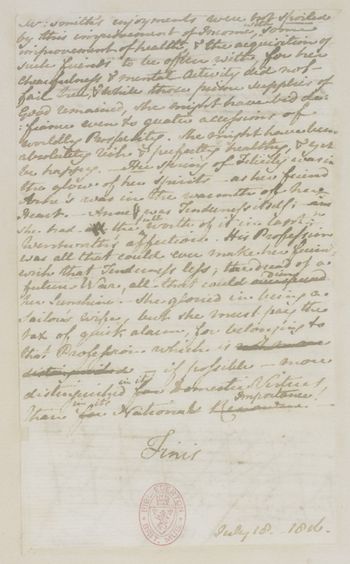 Mrs: Smith's enjoyments were not spoiled
by this improvement of Income, with some
improvement of health, & the acquisition of
such friends to be often with, for her
chearfulness & mental Activity did not
fail her, & while those prime supplies of
Good remained, she might have bid de-
:fiance even to greater accessions of
worldly Prosperity. She might have been
absolutely rich & perfectly healthy, & yet
be happy. — Her spring of Felicity was in
the glow of her Spirits — as her friend
Anne's was in the warmth of her
Heart. — Anne was Tenderness itself; — and
she had the full worth of it in Capt:
Wentworth's affection. His Profession
was all that could ever make her friends
wish that Tenderness less; the dread of a
future War, all that could dim
her Sunshine. — She gloried in being a
Sailor's wife, but she must pay the
tax of quick alarm, for belonging to
that Profession which is
if possible — more
distinguished in its Domestic Virtues,
than in its National Importance.
Finis
MUS. EGERTON
BRIT. MUS.
July 18. — 1816.